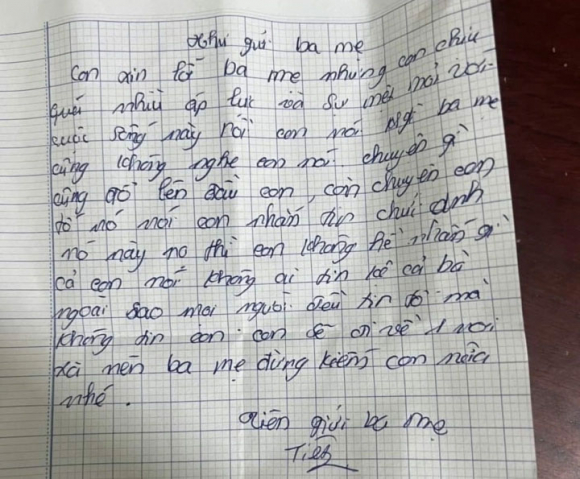 Thư gửi ba mẹ
Con xin lỗi ba mẹ nhưng con chịu
quá nhiù áp lực và sự mệt mỏi với
cuộc sống này rồi con nói ba mẹ
cũng không nghe con nói. chuyện gì
cũng đổ lên đầu con, còn chuyện con
đó nó nói con nhắn tin chưi
nó này nọ thì con không hề nhắn gì
cả con nói không ai tin kể cả bà
ngoại sao mọi người đều tin đồ mà
không tin con. con sẽ đi về 1 nơi
xa nên ba mẹ đừng kiếm con nữa
nhé.
ba mẹ
Tiến